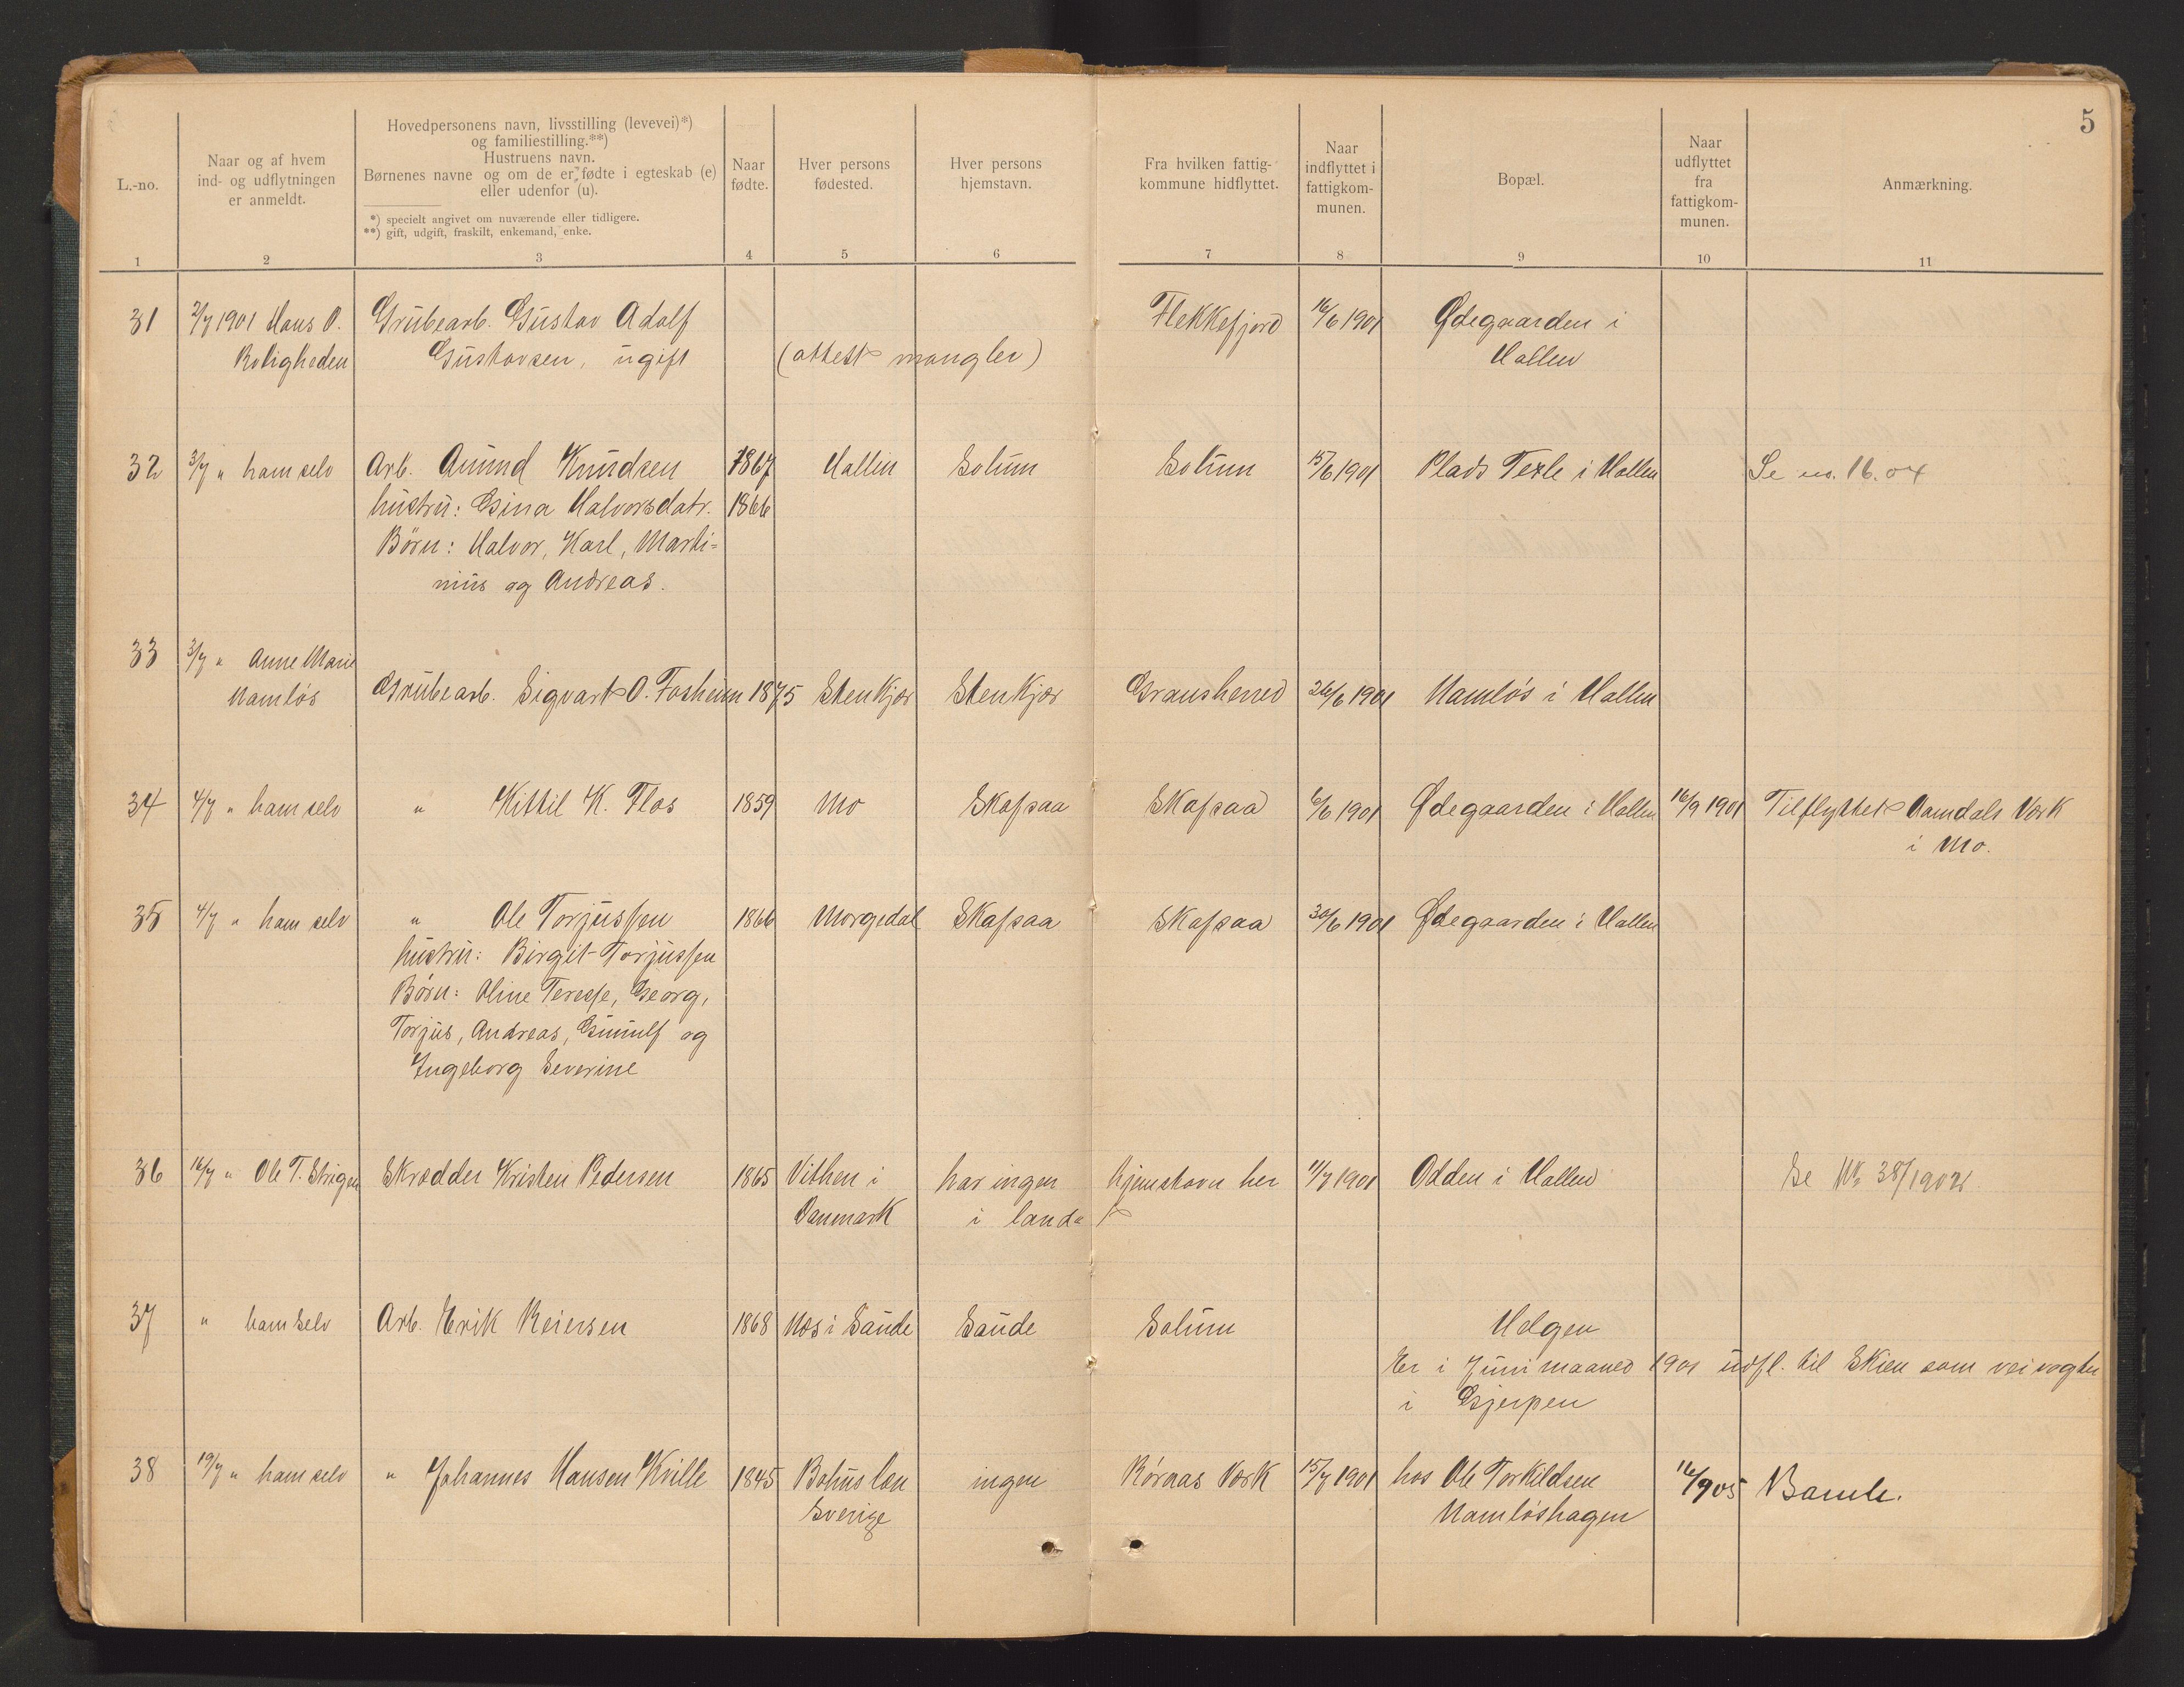 5
L.-no.
Naar og af hvem
ind- og udflytningen
er anmeldt.
Hovedpersonens navn, livsstilling (levevei)*)
og familiestilling.**)
Hustruens navn.
Børnenes navne og om de er fødte i egteskab (e)
eller udenfor (u).
*) specielt angivet om nuværende eller tidligere.
**) gift, ugift, fraskilt, enkemand, enke.
Naar
fødte.
Hver persons
fødested.
Hver persons
hjemstavn.
Fra hvilken fattig-
kommune hidflyttet.
Naar
indflyttet i
fattigkom-
munen.
Bopæl.
Naar
udflyttet
fra
fattigkom-
munen.
Anmærkning.
1 2 3 4 5 6 7 8 9 10 11
31 2/7 1901 Hans O. Grubearb. Gustav Adolf Flekkefjord 16/6 1901 Ødegaarden i
Roligheden Gustavsen, ugift (attest mangler) Hollen
32 3/7 " ham selv Arb. Amund Knudsen 1867 Hollen Solum Solum 15/6 1901 Plads Texle i Hollen Se no. 16. 04
hustru: Gina Halvorsdatr. 1866
Børn: Halvor, Karl, Marti-
nius og Andreas.
33 3/7 " Anne Marie
Namløs Grubearb. Sigvart O. Fosheim 1875 Stenkjær Stenkjær Gransherred 26/6 1901 Namløs i Hollen
34 4/7 " ham selv " Kittil K. Flos 1859 Mo Skafsaa Skafsaa 6/6 1901 Ødegaarden i Hollen 16/9 1901 Tilflyttet Aamdals Værk
i Mo.
35 4/7 " ham selv " Ole Torjussen 1866 Morgedal Skafsaa Skafsaa 30/6 1901 Ødegaarden i Hollen
hustru: Birgit Torjussen
Børn: Oline Terese, Georg,
Torjus, Andreas, Gunulf og
Ingeborg Severine
36 16/7 " Ole T. Strigen Skrædder Kristen Pedersen 1865 Vithen i har ingen hjemstavn her 11/7 1901 Odden i Hollen Se No 38/1902
Danmark i landet
37 " ham selv Arb. Erik Reiersen 1868 Næs i Saude Saude Solum Helgen
Er i Juni maaned 1901 udfl. til Skien som veivogter
i Gjerpen
38 19/7 " ham selv " Johannes Hansen Kville 1845 Bohus læn ingen Røraas Værk 15/7 1901 hos Ole Torkildsen 16/9 05 Bamle.
Sverige Namløshagen